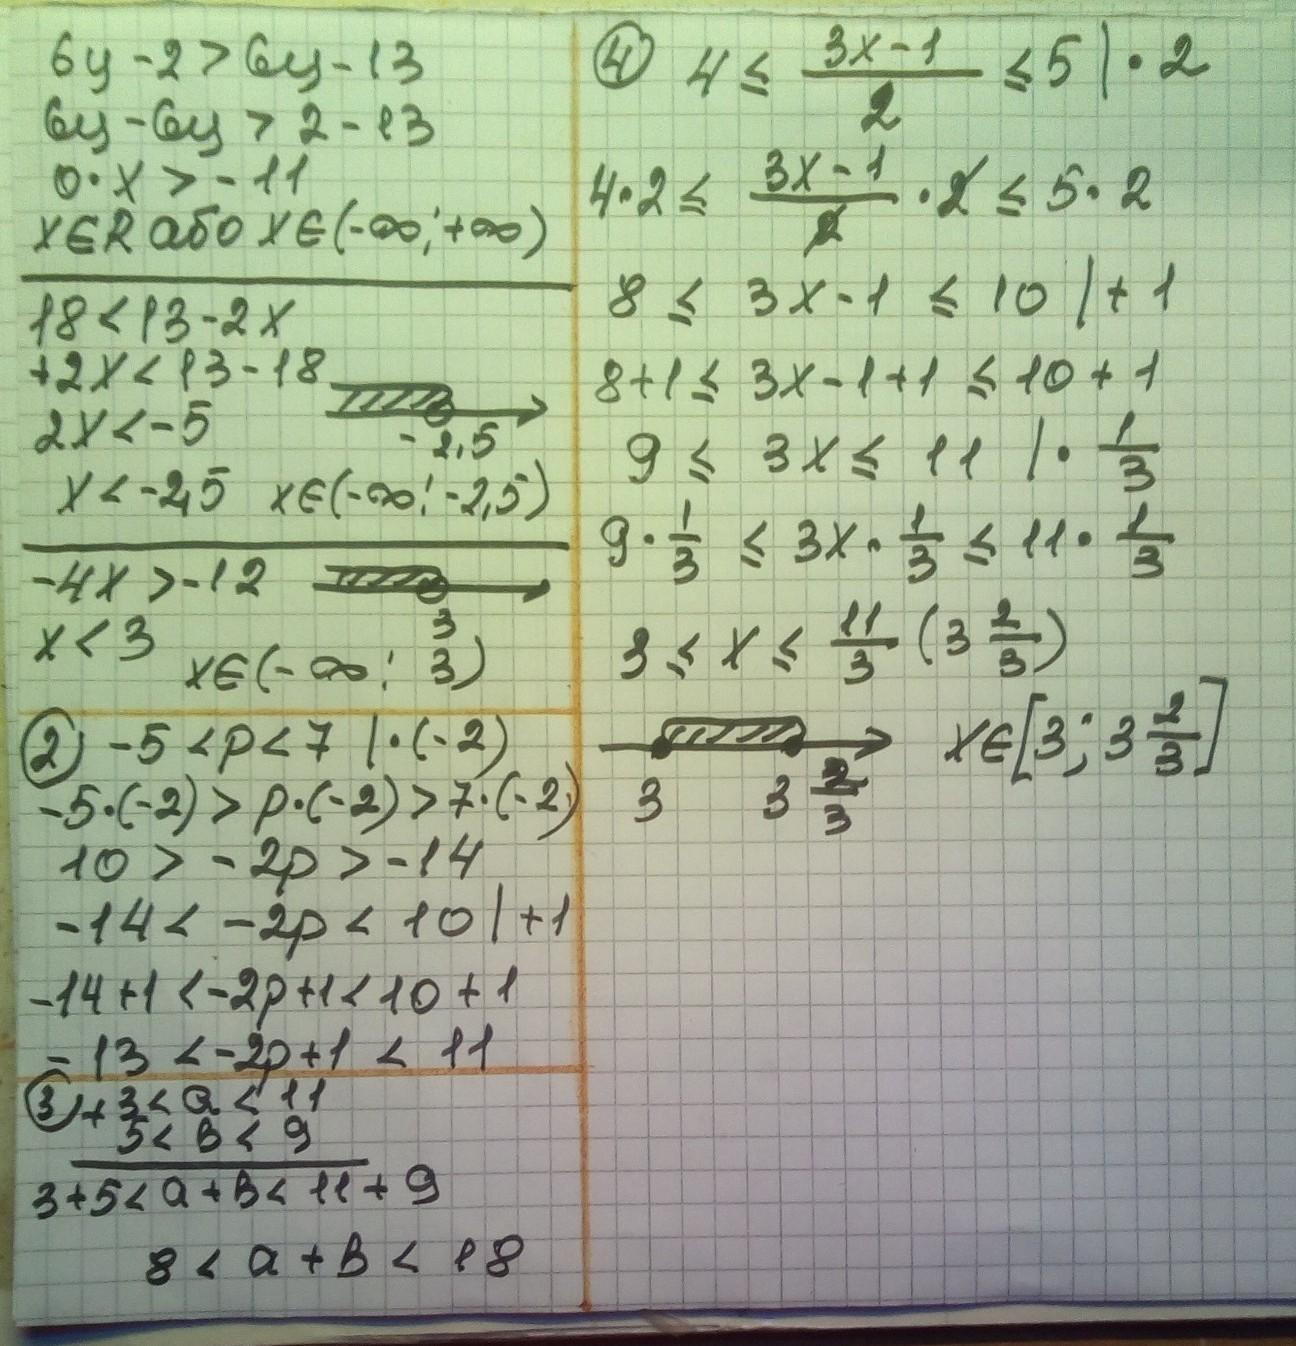 6y - 2 > 6y - 13
6y - 6y > 2 - 13
0 · x > - 11
x ∈ R або x ∈ (-∞; +∞)
18 < 13 - 2x
+2x < 13 - 18
2x < -5
-2,5
x < -2,5 x ∈ (-∞; -2,5)
-4x > -12
x < 3
3
x ∈ (-∞; 3)
2) -5 < p < 7 | · (-2)
-5 · (-2) > p · (-2) > 7 · (-2)
10 > -2p > -14
-14 < -2p < 10 | +1
-14 + 1 < -2p + 1 < 10 + 1
-13 < -2p + 1 < 11
3) + 3 < a < 11
5 < B < 9
3 + 5 < a + B < 11 + 9
8 < a + B < 18
4 4 ≤ (3x - 1)/2 ≤ 5 | · 2
4 · 2 ≤ (3x - 1)/2 · 2 ≤ 5 · 2
8 ≤ 3x - 1 ≤ 10 | + 1
8 + 1 ≤ 3x - 1 + 1 ≤ 10 + 1
9 ≤ 3x ≤ 11 | · 1/3
9 · 1/3 ≤ 3x · 1/3 ≤ 11 · 1/3
3 ≤ x ≤ 11/3 (3 2/3)
3 3 2/3 x ∈ [3; 3 2/3]